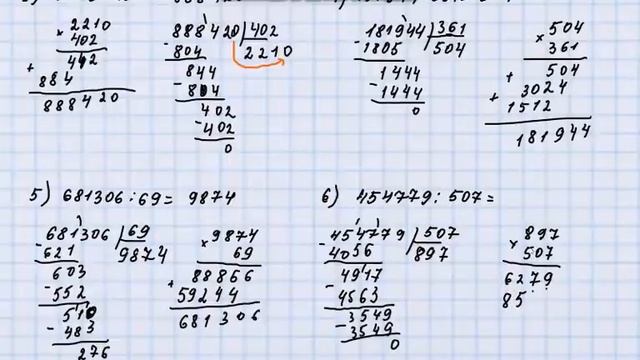 × 2210
402
+ 442
884
888420
888420 | 402
- 804 2210
844
- 804
402
- 402
0
181944 | 361
- 1805 504
1444
- 1444
0
× 504
361
+ 504
+ 3024
1512
181944
5) 681306 : 69 = 9874
681306 | 69
- 621 9874
603
- 552
510
- 483
276
× 9874
69
+ 88866
59244
681306
6) 454779 : 507 =
454779 | 507
- 4056 897
4917
- 4563
3549
- 3549
0
× 897
507
6279
85